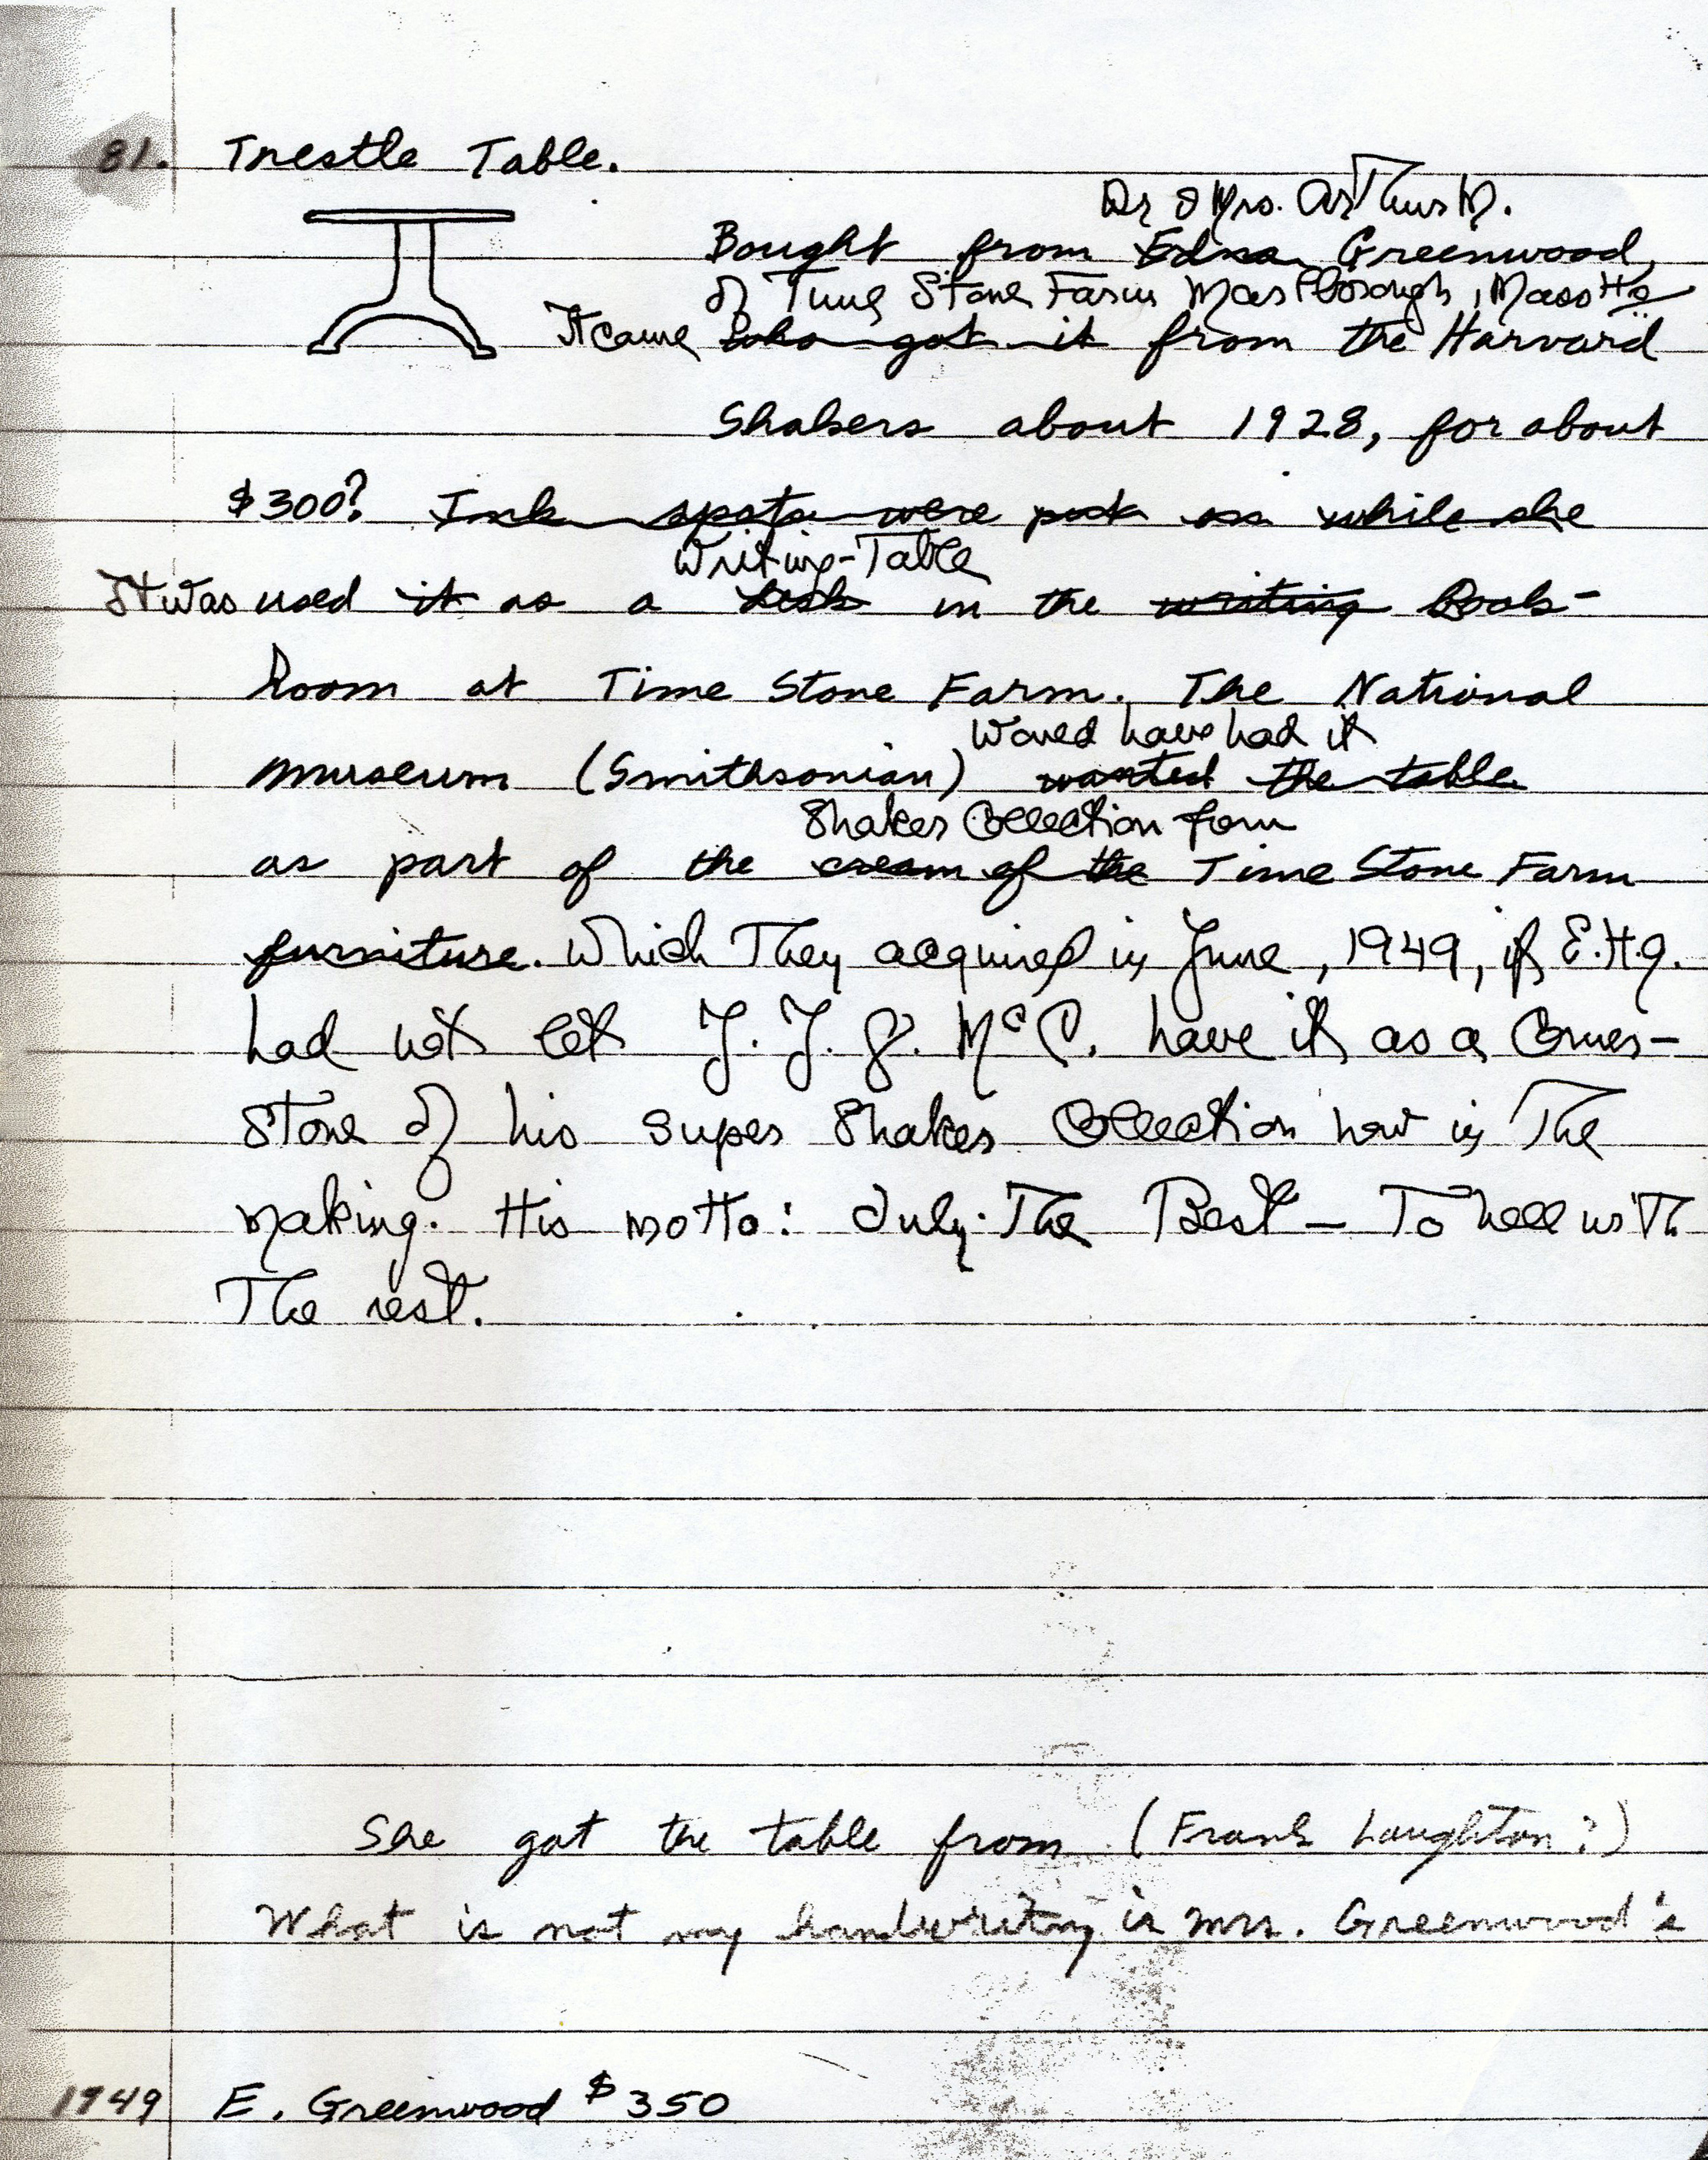 81. Trestle Table.
Dr & Mrs. Arthur M.
Bought from Edna Greenwood,
of Time Stone Farm Marlborough, Mass
It came who got it from the Harvard
Shakers about 1928, for about
$300? Ink spots were put on while she
Writing-Table
It was used it as a desk in the writing Book-
Room at Time Stone Farm. The National
Would have had it
Museum (Smithsonian) wanted the table
Shaker Collection from
as part of the cream of the Time Stone Farm
furniture. Which They acquired in June, 1949, if E.H.G.
had not let J. J. G. McC. have it as a Corner-
Stone of his Super Shaker Collection now in The
making. His motto: Only The Best — To hell with
The rest.
She got the table from (Frank Laughton?)
What is not my handwriting is Mrs. Greenwood's
1949 E. Greenwood $350